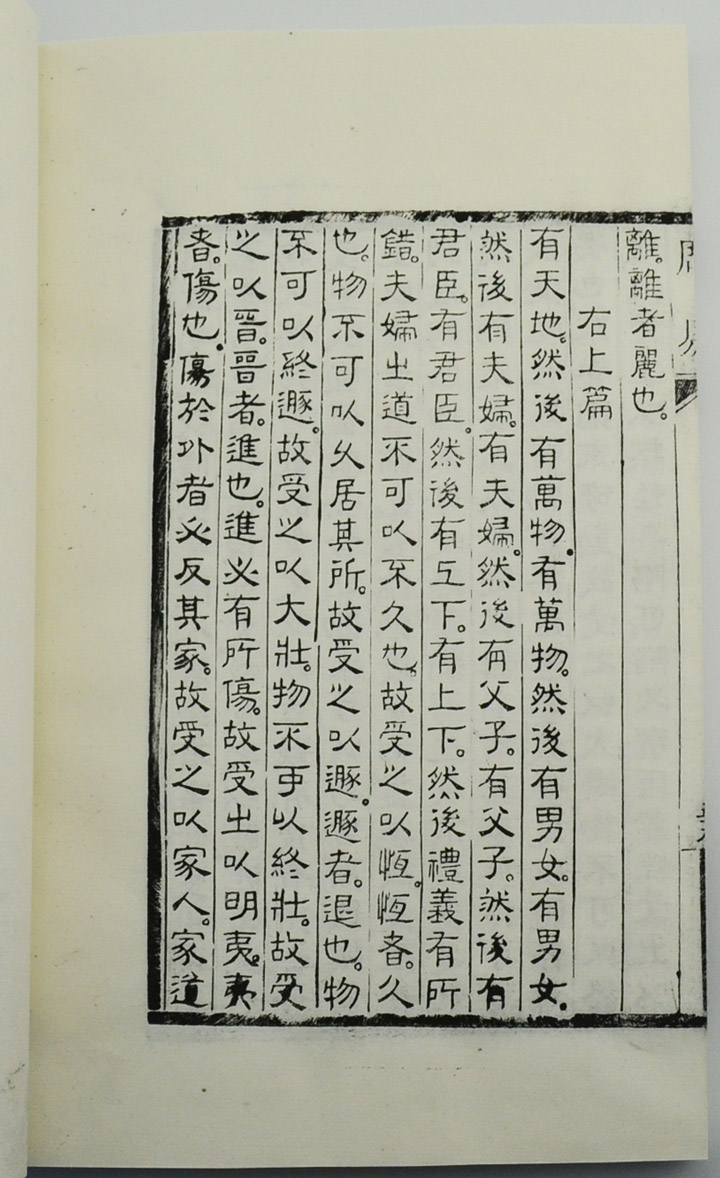 離。離者麗也。
右上篇
有天地。然後有萬物。有萬物。然後有男女。有男女。
然後有夫婦。有夫婦。然後有父子。有父子。然後有
君臣。有君臣。然後有上下。有上下。然後禮義有所
錯。夫婦之道不可以不久也。故受之以恆。恆者。久
也。物不可以久居其所。故受之以遯。遯者。退也。物
不可以終遯。故受之以大壯。物不可以終壯。故受
之以晉。晉者。進也。進必有所傷。故受之以明夷。夷
者。傷也。傷於外者必反其家。故受之以家人。家道